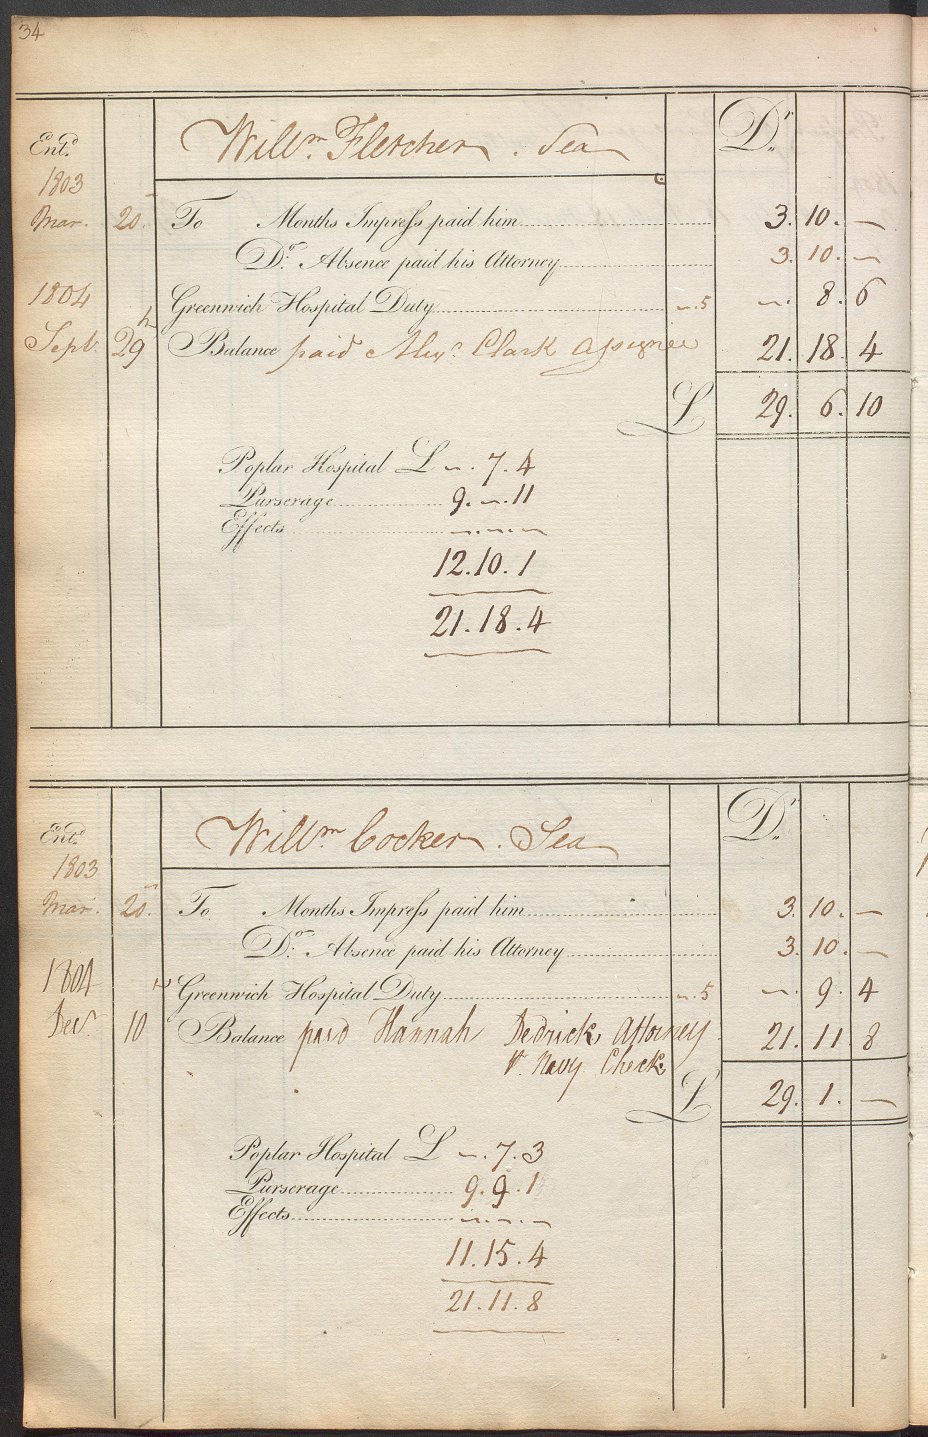 34
Willm. Fletcher. Sea Dr.
Entd.
1803
Mar. 20. To Months Impress paid him 3. 10. —
Do. Absence paid his Attorney 3. 10. —
1804 Greenwich Hospital Duty ~. 5 ~. 8. 6
Sept. 29th Balance paid Alexr. Clark Assignee 21. 18. 4
£ 29. 6. 10
Poplar Hospital £ ~. 7. 4
Purserage 9. ~. 11
Effects ~. ~. ~
12. 10. 1
21. 18. 4
Willm Cocker. Sea Dr.
Entd.
1803
Mar. 20. To Months Impress paid him 3. 10. —
Do. Absence paid his Attorney 3. 10. —
1804 Greenwich Hospital Duty ~. 5 ~. 9. 4
Decr 10 Balance paid Hannah Dedrick Attorney 21. 11. 8
Navy Check
£ 29. 1. —
Poplar Hospital £ ~. 7. 3
Purserage 9. 9. 1
Effects ~. ~. ~
11. 15. 4
21. 11. 8